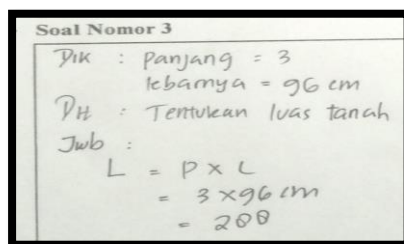 Soal Nomor 3
Dik : panjang = 3
lebarnya = 96 cm
DH : Tentukan luas tanah
Jwb :
L = P x L
= 3 x 96 cm
= 200